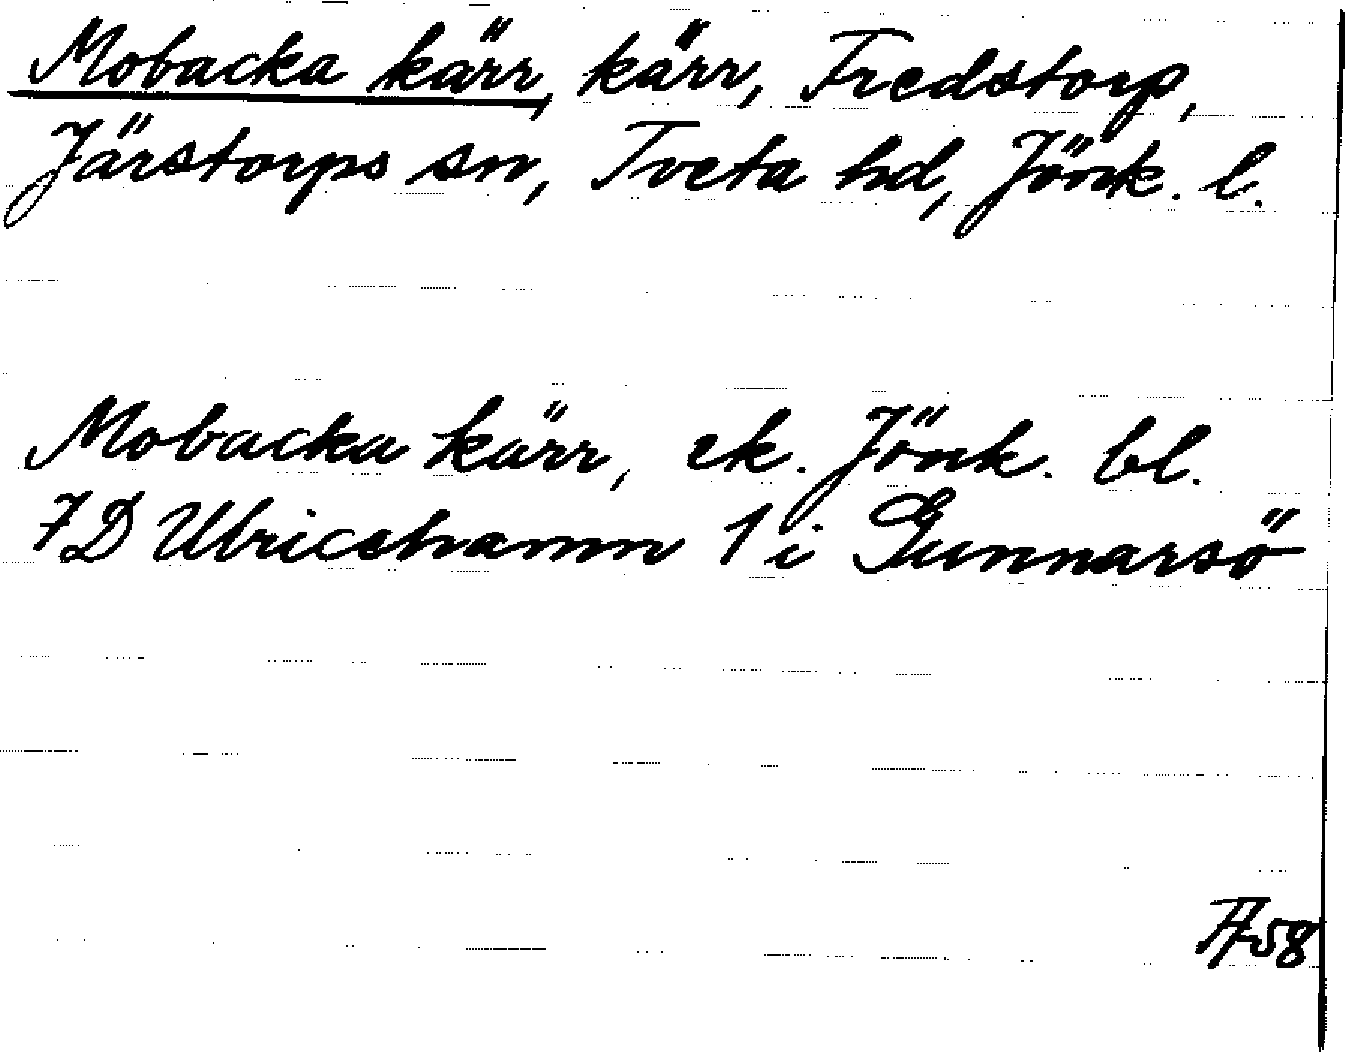 Mobacka kärr, kärr, Fredstorp,
Järstorps sn, Tveta hd, Jönk. l.
Mobacka kärr, ek. Jönk. bl.
7D Ulricehamn 1 i Gunnarsö